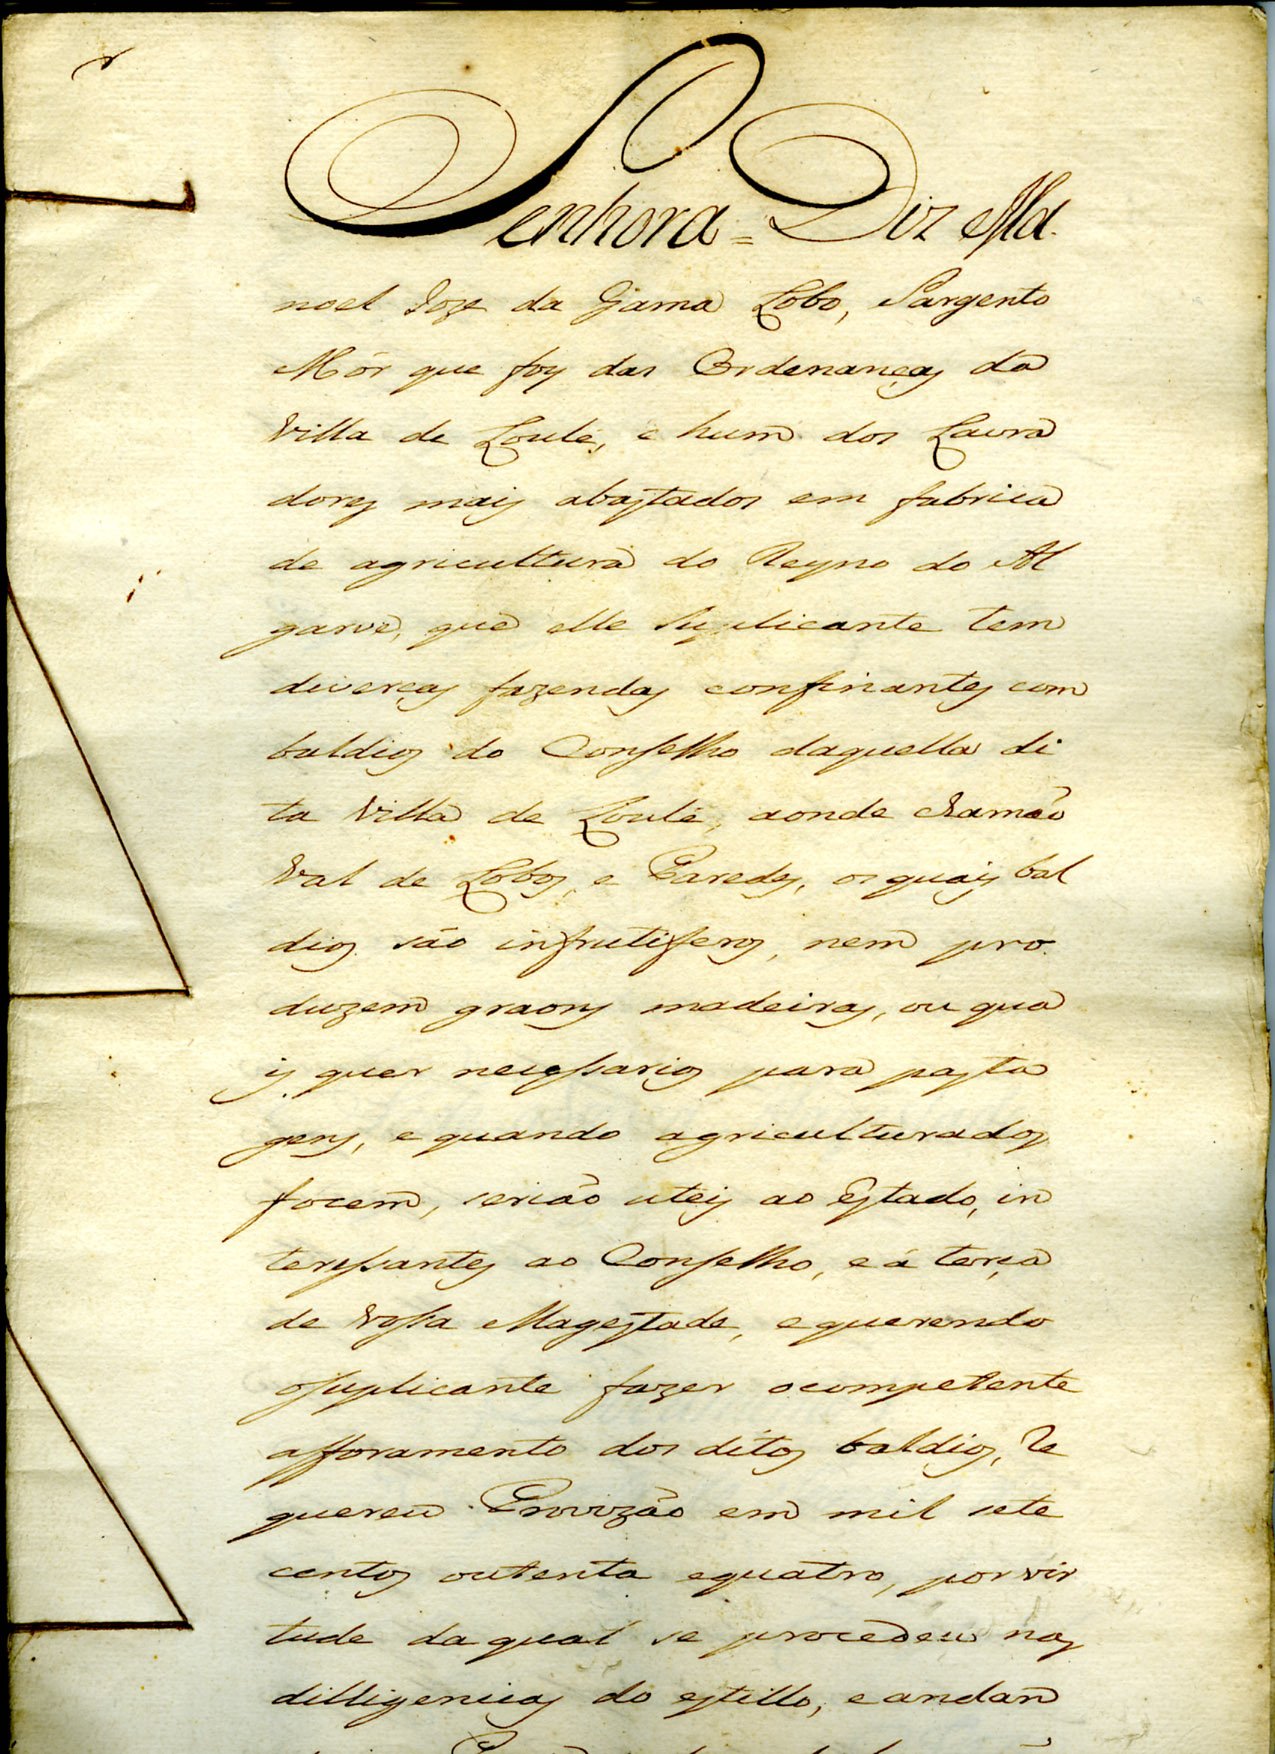 Senhora = Diz Ma
noel Joze da Gama Lobo, Sargento
Mór que foy das Ordenanças da
Villa de Loulé, e hum dos Lavra
dores mais abastados em fabrica
de agricultura do Reyno do Al
garve, que elle Suplicante tem
diverças fazendas confinantes com
baldios do Conselho daquella di
ta Villa de Loulé, aonde chamão
Val de Lobos, e Paredes, os quais bal
dios são infrutiferos, nem pro
duzem graons madeiras, ou qua
is quer necessarios para pasta
gens, e quando agriculturados
focem, serião uteis ao Estado, in
teressantes ao Conselho, e á terça
de Vossa Magestade, e querendo
o Suplicante fazer o competente
afforamento dos ditos baldios, Re
quereu Provizão em mil sete
centos outenta e quatro, por vir
tude da qual se procedeu nas
dilligencias do estillo, e andan